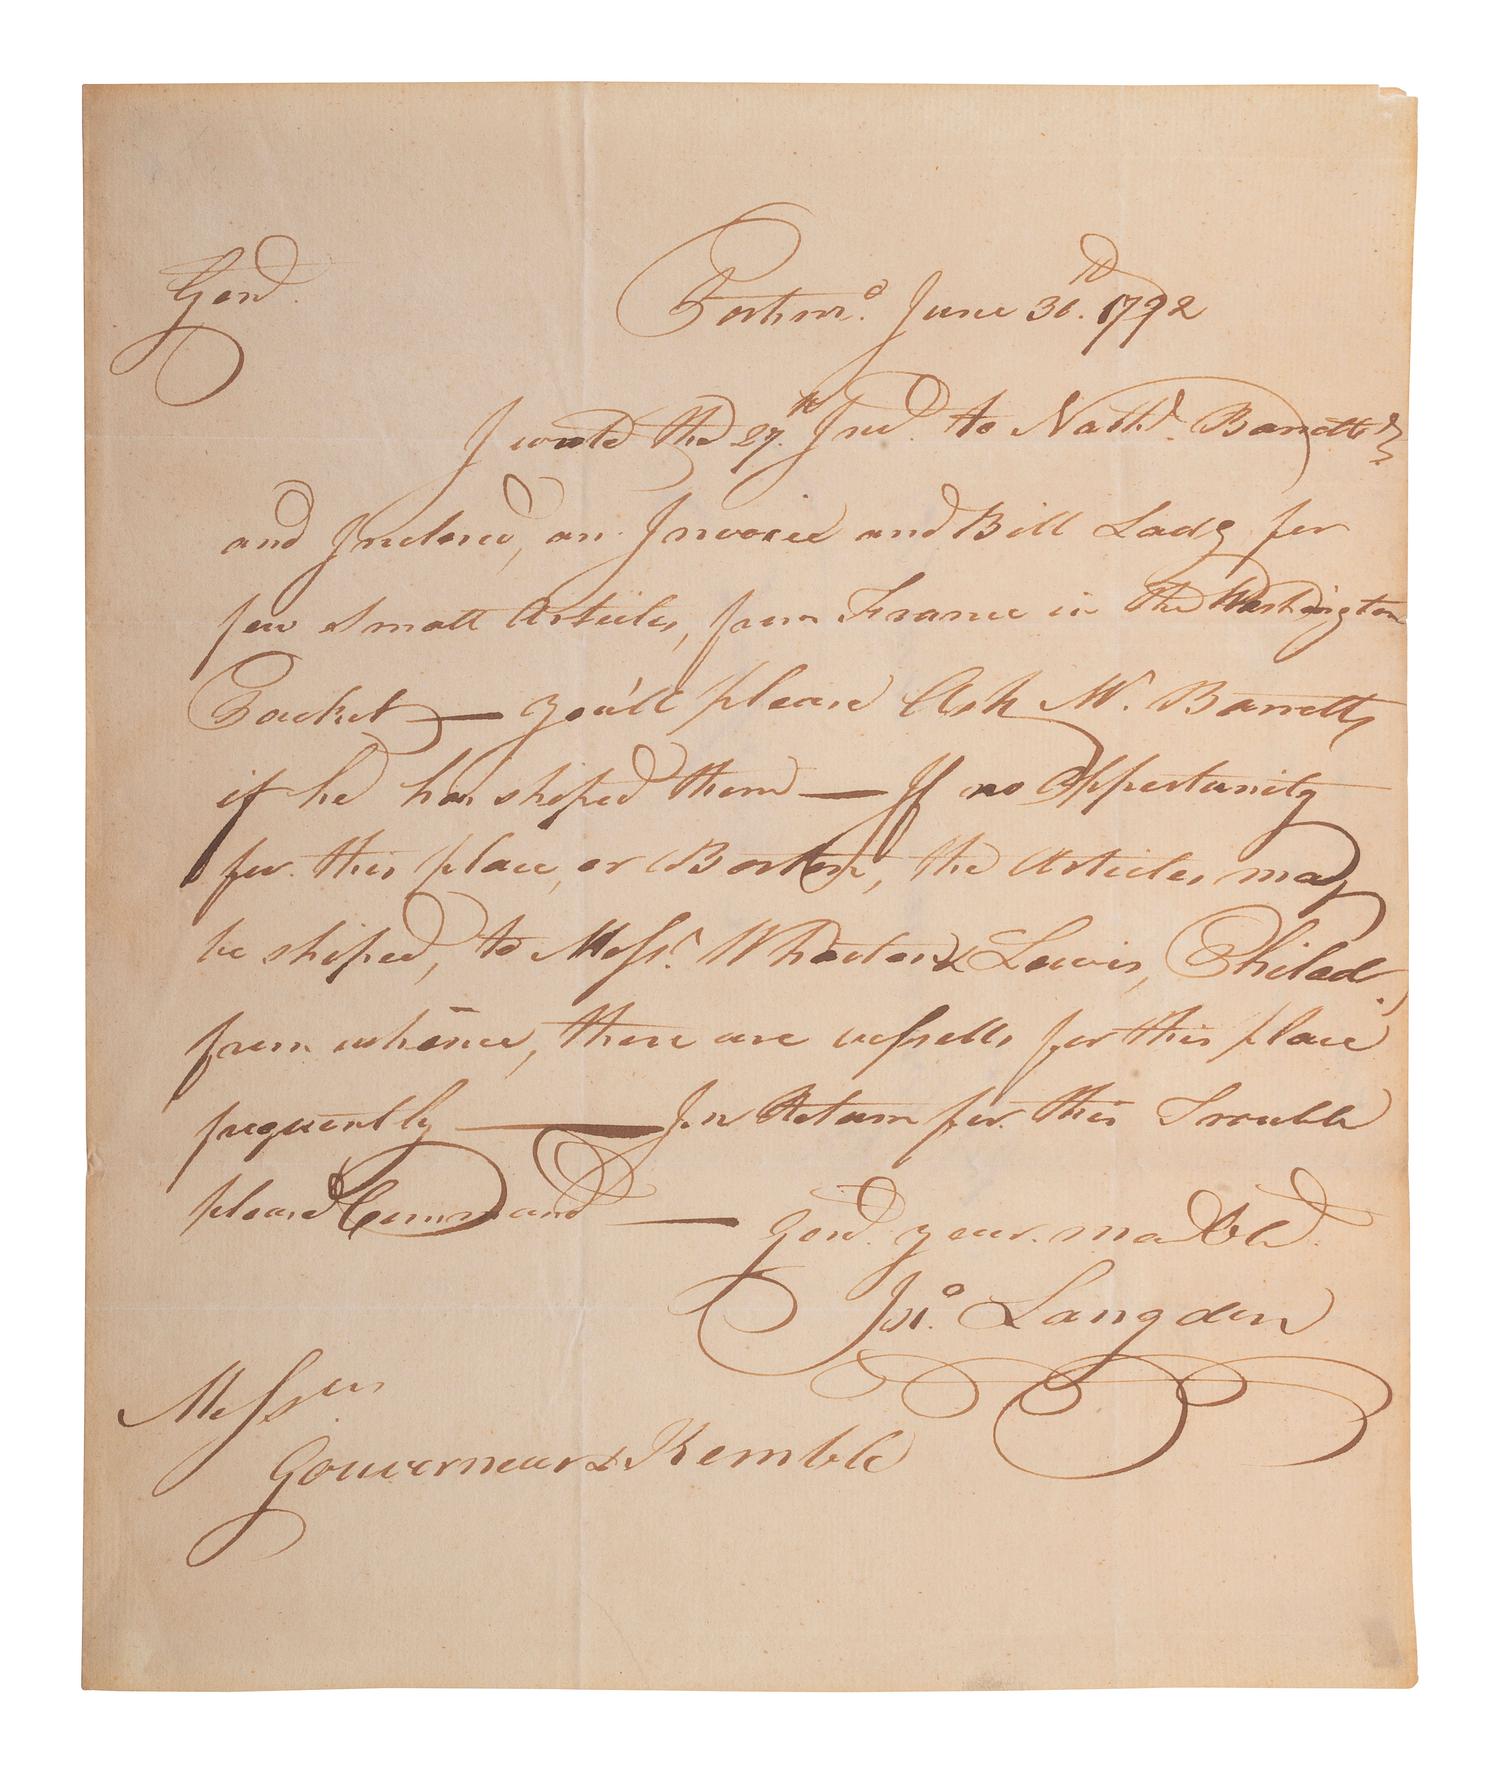 Gent.
Portsmo. June 30th. 1792
I wrote the 27th Inst. to Nathl. Barrett
and Inclosed, an Invoice and Bill Ladg for
few small Articles, from France in the Washington
Packet — you'll please Ask Mr. Barrett,
if he has shiped them — If no Oppertunity
for this place, or Boston, the Articles may
be shiped, to Messrs. & Lewis, Philad.
from whence, there are vessells for this place
frequently — In Return for this Trouble
please Command — Gent. your mo Obt.
Jno. Langdon
Messrs
Gouverneur & Kemble